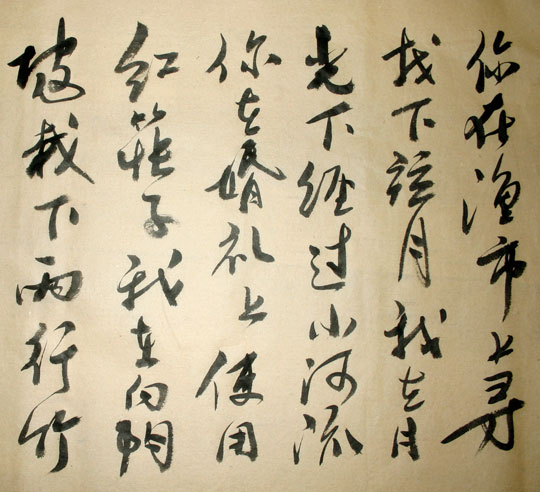 你在渔市上寻
找下弦月我在月
光下经过小河流
你在婚礼上使用
红筷子我在向阳
坡栽下两行竹